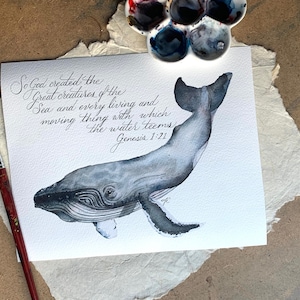 So God created the
Great creatures of the
Sea and every living and
moving thing with which
the water teems
Genesis 1:21